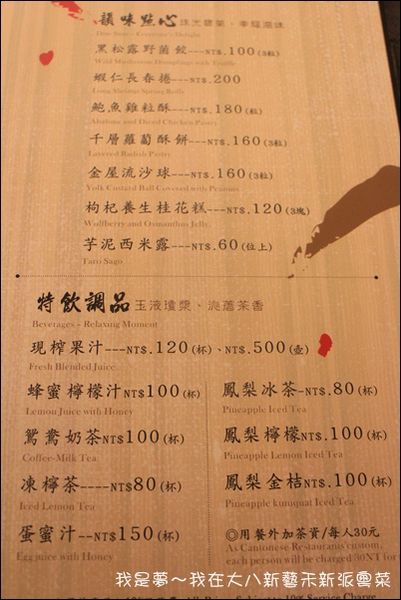 韻味點心 珠光寶菜、幸羅滋味
Dim Sum - Gourmet's Delight
黑松露野菌餃---NT$.100(3粒)
Wild Mushroom Dumplings with Truffle
蝦仁長春捲---NT$.200
Long Shrimp Spring Rolls
鮑魚雞粒酥---NT$.180(粒)
Abalone and Diced Chicken Pastry
千層蘿蔔酥餅---NT$.160(3粒)
Layered Radish Pastry
金屋流沙球---NT$.160(3粒)
Yolk Custard Ball Covered with Peanuts
枸杞養生桂花糕---NT$.120(3塊)
Wolfberry and Osmanthus Jelly
芋泥西米露---NT$.60(位上)
Taro Sago
特飲調品 玉液瓊漿、茶香
Beverages - Relaxing Moment
現榨果汁---NT$.120(杯)、NT$.500(壺)
Fresh Blended Juice
蜂蜜檸檬汁NT$100(杯)
Lemon Juice with Honey
鴛鴦奶茶NT$100(杯)
Coffee-Milk Tea
凍檸茶----NT$80(杯)
Iced Lemon Tea
蛋蜜汁---NT$150(杯)
Egg juice with Honey
鳳梨冰茶-NT$.80(杯)
Pineapple Iced Tea
鳳梨檸檬NT$.100(杯)
Pineapple Lemon Iced Tea
鳳梨金桔NT$.100(杯)
Pineapple kumquat Iced Tea
◎用餐外加茶資/每人30元
As Cantonese Restaurants custom,
each person will be charged 30NT for
10% Service Charge
我是夢～我在大八新藝示新派粵菜